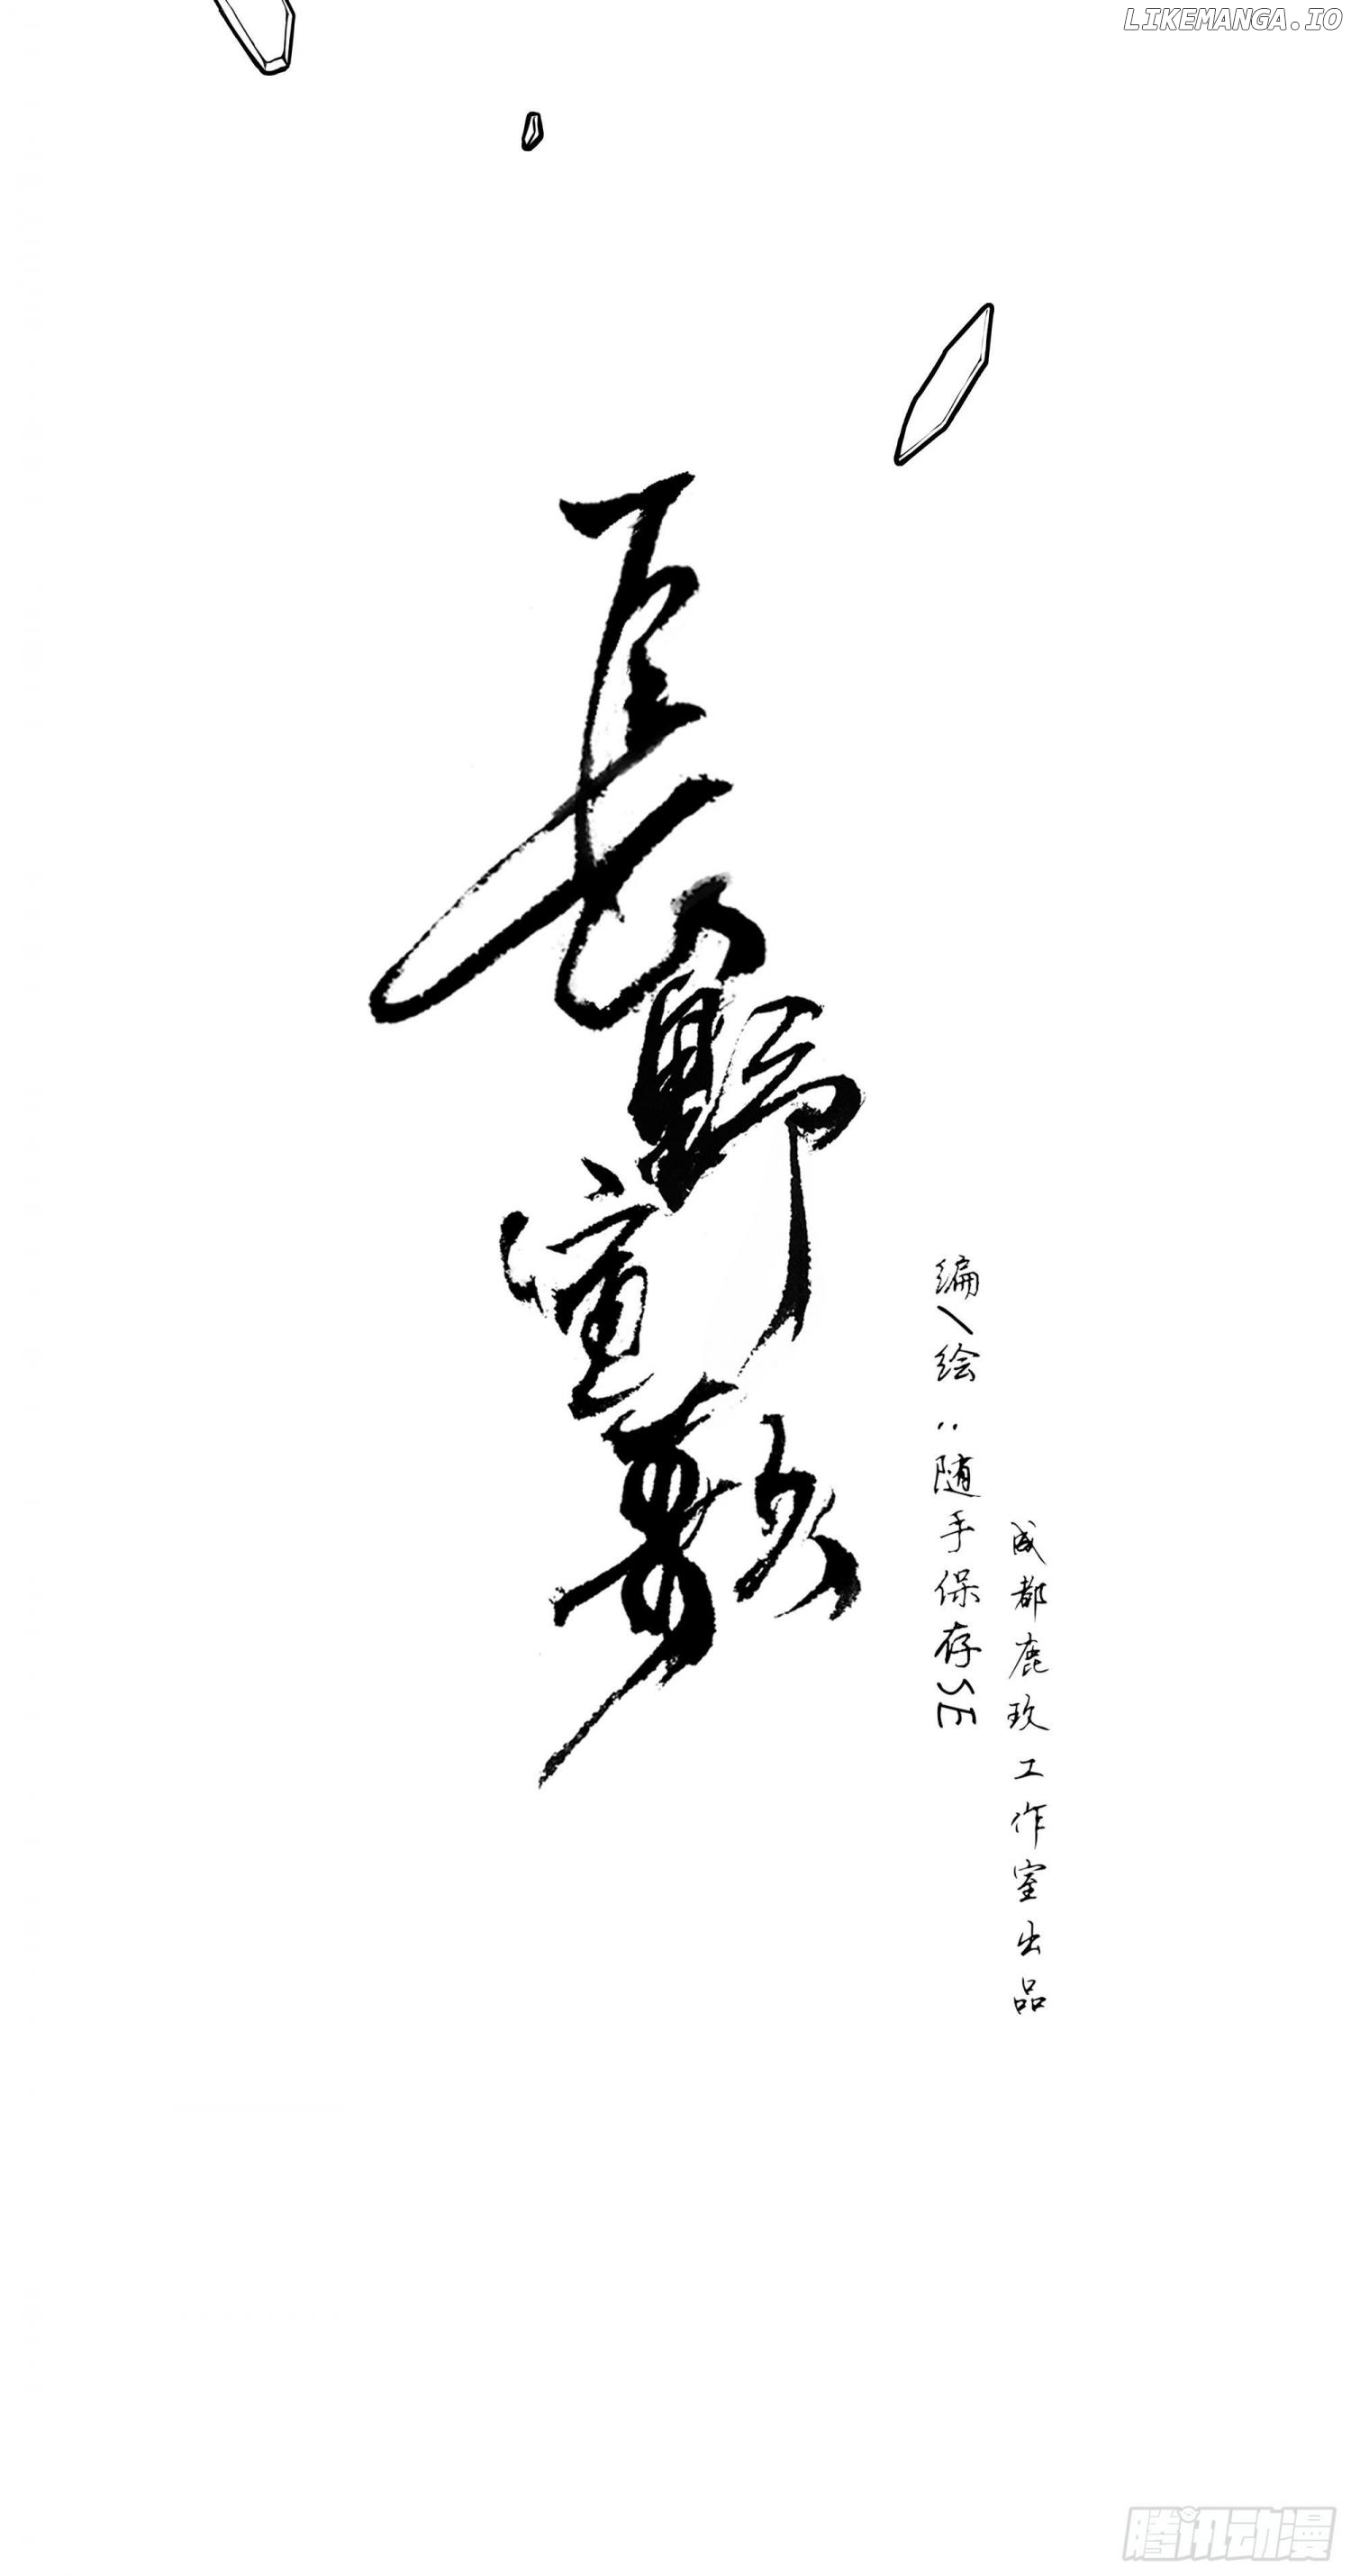 LIKEMANGA.IO
長野寅敖
编/绘：随手保存SE
成都鹿玖工作室出品
腾讯动漫